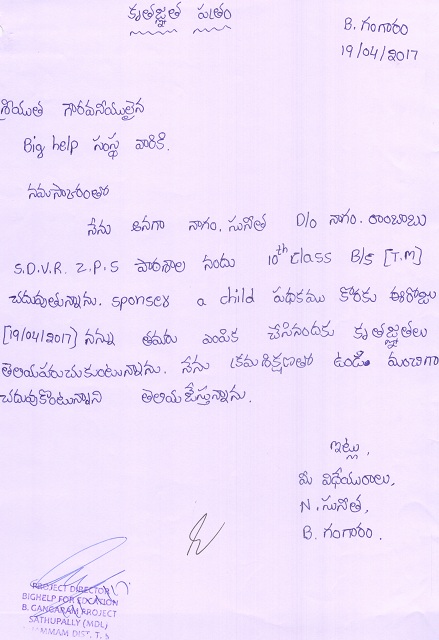 కృతజ్ఞత పత్రం
B. గంగారం
19/04/2017
శ్రీయుత గౌరవనీయులైన
Big help సంస్థ వారికి.
నమస్కారంతో
నేను అనగా నాగం. సునీత D/o నాగం. రాంబాబు
S.D.V.R. Z.P.S పాఠశాల నందు 10th class B/s [T.M]
చదువుతున్నాను. sponser a child పథకము కొరకు ఈరోజు
[19/04/2017] నన్ను తమరు ఎంపిక చేసినందకు కృతజ్ఞతలు
తెలియపరుచుకుంటున్నాను. నేను క్రమశిక్షణతో ఉండి మంచిగా
చదువుకొంటున్నాని తెలియజేస్తున్నాను.
ఇట్లు,
మీ విధేయురాలు,
N. సునీత,
B. గంగారం.
PROJECT DIRECTOR
BIGHELP FOR EDUCATION
B. GANGARAM PROJECT
SATHUPALLY (MDL)
KHAMMAM DIST. T. S